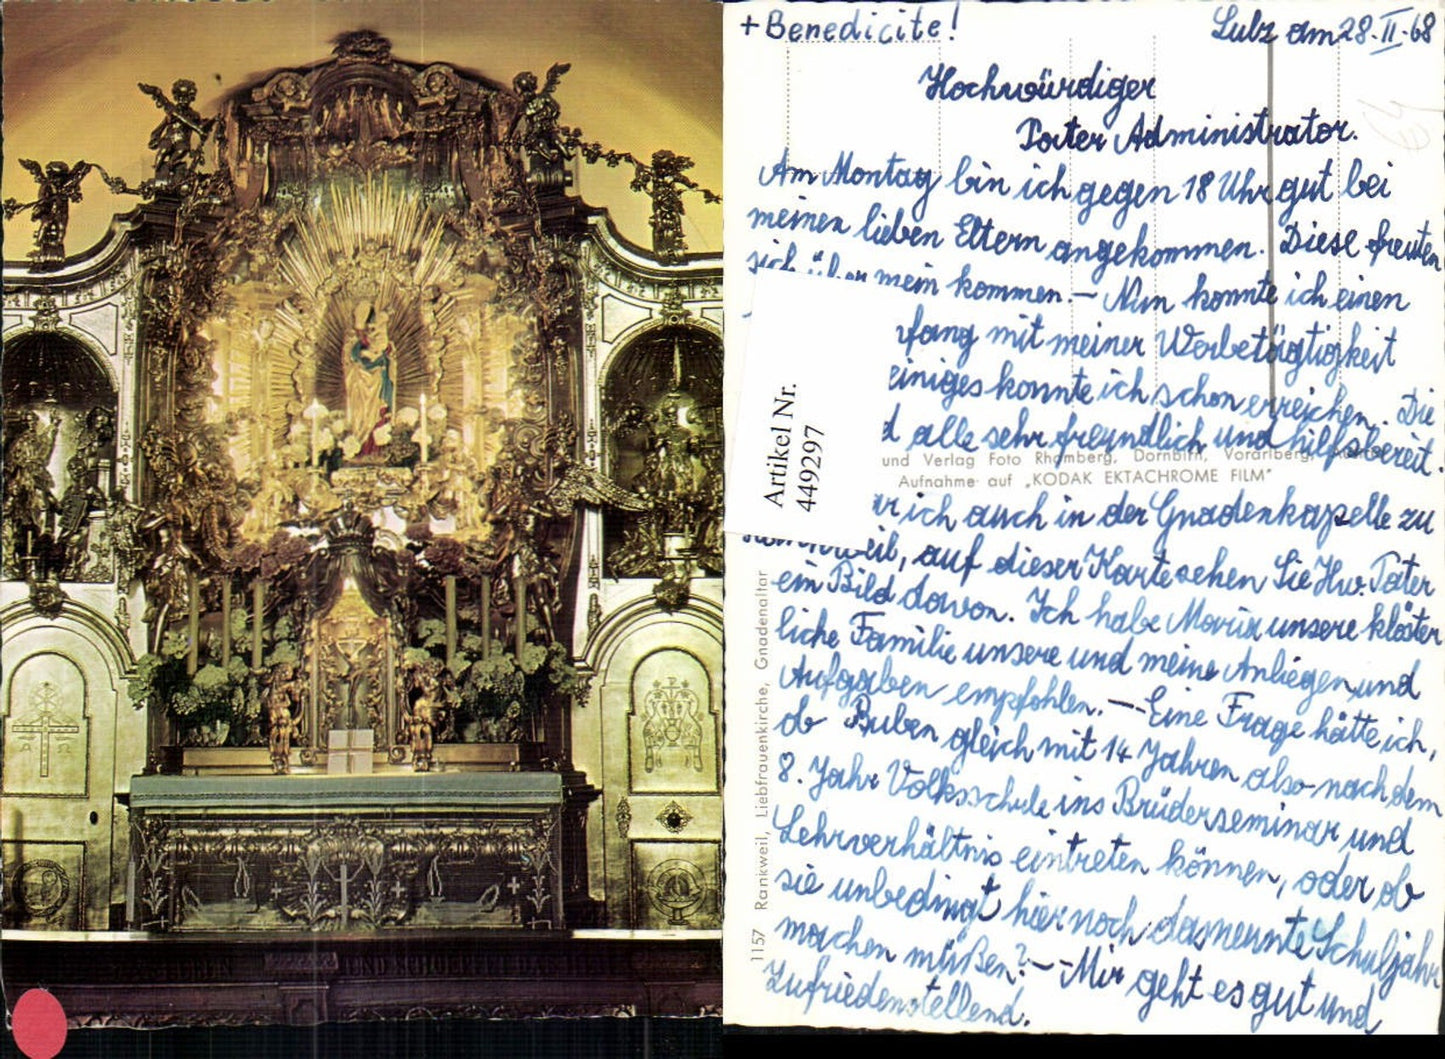 + Benedicite!
Sulz am 28.II.68
Hochwürdiger
Pater Administrator.
Am Montag bin ich gegen 18 Uhr gut bei
meinen lieben Eltern angekommen. Diese freuten
sich über mein kommen. — Nun konnte ich einen
fang mit meiner Werbetätigkeit
einiges konnte ich schon erreichen. Die
d alle sehr freundlich und hilfsbereit.
ich auch in der Gnadenkapelle zu
weil, auf dieser Karte sehen Sie Hw. Pater
ein Bild davon. Ich habe Maria unsere klöster
liche Familie unsere und meine Anliegen und
Aufgaben empfohlen. — Eine Frage hätte ich,
ob Buben gleich mit 14 Jahren also nach dem
8. Jahr Volksschule ins Brüderseminar und
Lehrverhältnis eintreten können, oder ob
sie unbedingt hier noch das neunte Schuljahr
machen müßen? — Mir geht es gut und
Zufriedenstellend.
Artikel Nr.
449297
und Verlag Foto Rhomberg, Dornbirn, Vorarlberg,
Aufnahme auf „KODAK EKTACHROME FILM"
1157 Rankweil, Liebfrauenkirche, Gnadenaltar